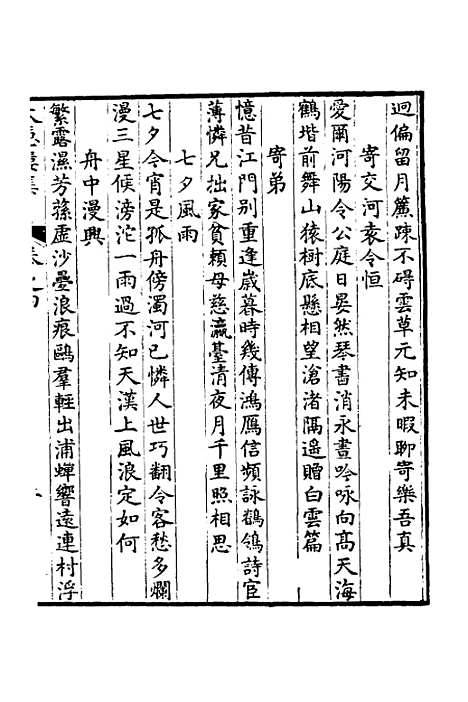 迥偏留月簾踈不碍雲草元知未暇聊寄樂吾真
寄交河袁令恒
愛爾河陽令公庭日晏然琴書消永晝吟咏向髙天海
鶴堦前舞山猿樹底懸相望滄渚隔遥贈白雲篇
寄弟
憶昔江門别重逢歲暮時幾傳鴻鴈信頻詠鶺鴒詩宦
薄憐兄拙家貧頼母慈瀛臺清夜月千里照相思
七夕風雨
七夕今宵是孤舟傍濁河已憐人世巧翻令客愁多爛
漫三星候滂沱一雨過不知天漢上風浪定如何
舟中漫興
繁露濕芳蓀虚沙疊浪痕鷗羣輕出浦蟬響遠連村浮
集 卷之四